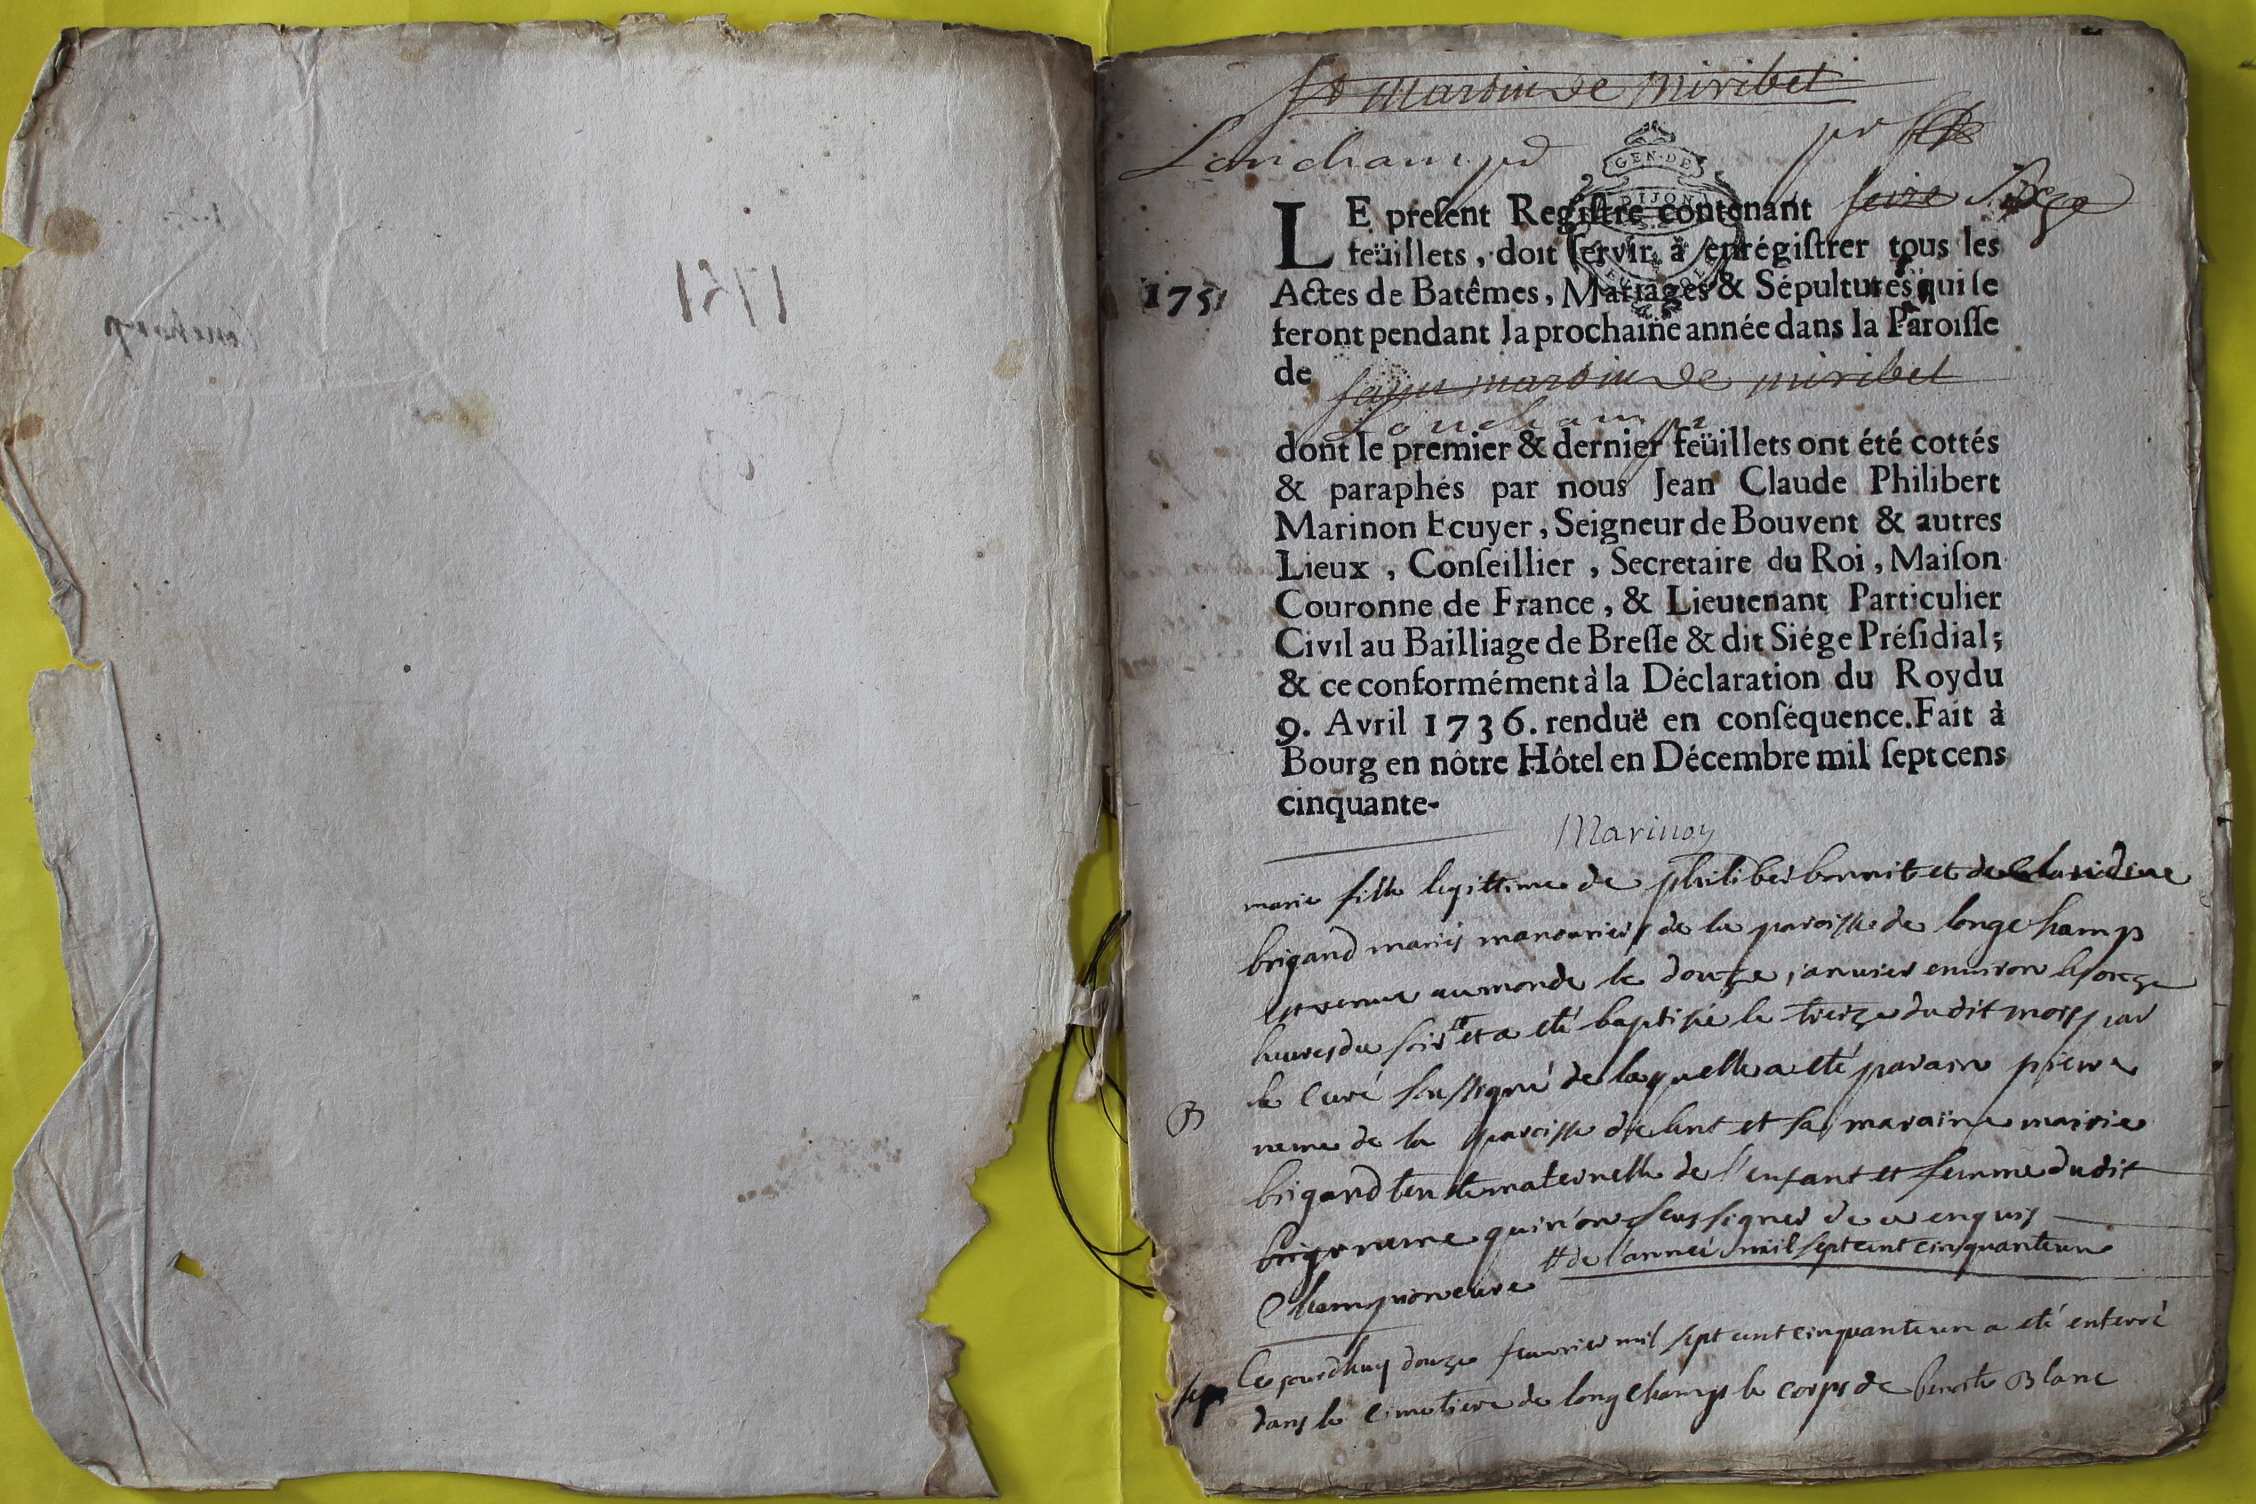 1751
St Martin de Miribel
Lonchamp
GEN. DE
DIJON
LE preſent Regiſtre contenant
feüillets, doit ſervir à enrégiſtrer tous les
1751
Actes de Batêmes, Mariages & Sépultures qui ſe
feront pendant la prochaine année dans la Paroiſſe
de saint martin de miribel
Lonchamp
dont le premier & dernier feüillets ont été cottés
& paraphés par nous Jean Claude Philibert
Marinon Ecuyer, Seigneur de Bouvent & autres
Lieux, Conſeillier, Secretaire du Roi, Maiſon
Couronne de France, & Lieutenant Particulier
Civil au Bailliage de Breſſe & dit Siége Préſidial;
& ce conformément à la Déclaration du Roy du
9. Avril 1736. renduë en conſéquence. Fait à
Bourg en nôtre Hôtel en Décembre mil ſept cens
cinquante-
Marinon
marie fille legittime de philiber bonnit et de claudine
brigand mariés manouvriers de la paroisse de longchamp
est venue au monde le douze janvier environ les onze
heures du soir et a eté baptisée le treize dudit mois par
le curé soussigné de laquelle a eté parain pierre
B
neme de la paroisse de lent et sa maraine marie
brigand tente maternelle de l'enfant et femme dudit
neme qui n'ont sceu signer de ce enquis
de l'année mil sept cent cinquante un
Champion curé
Ce jourdhuy douze fevrier mil sept cent cinquante un a eté enterré
sep
dans le cimetiere de longchamp le corps de benoite Blanc